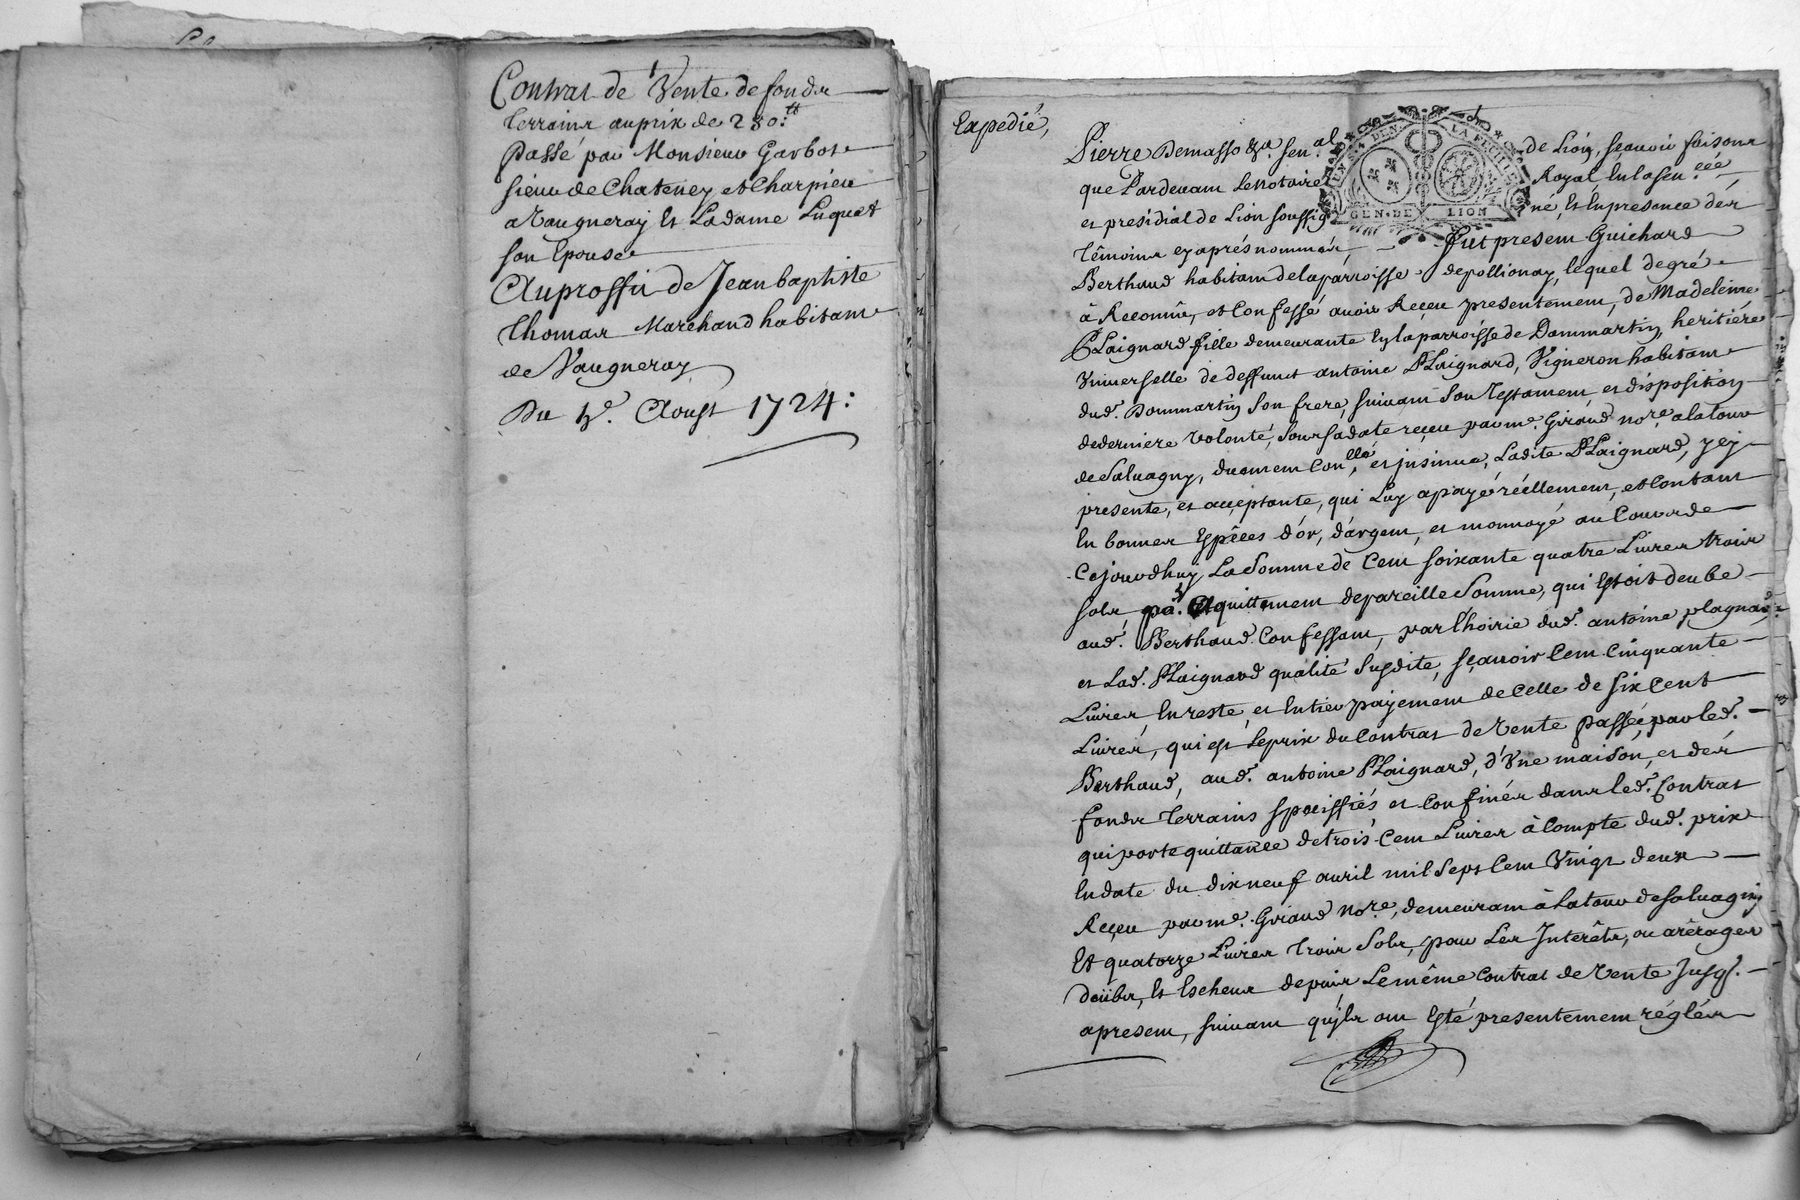 Contrat de Vente de fonds
terrains au prix de 280.tt
Passé par Monsieur Garbot
sieur de Chateney et Charpieu
a Vaugneray Et La dame Luquet
son Epouse
Au proffit de Jean baptiste
thomas Marchand habitant
de Vaugneray
Du Aoust 1724:
Expedié,
Pierre Demasso &a. sen.al de Lion, sçavoir faisons
que Pardevant Le Notaire Royal En la sen.cée
et presidial de Lion soussigné, Et En presence des
têmoins cy aprés nommés fut present Guichard
Berthaud habitant de la parroisse de pollionay, lequel de gré
à Reconnû, et Confessé avoir Reçeu presentement, de Madeleine
PLaignard fille demeurante En la parroisse de Dommartin, heritiére
Universelle de deffunct antoine PLaignard, Vigneron habitant
dud. Dommartin son frere, suivant son testament, et disposition
de derniere Volonté, sous sa date reçeu par me. Giraud no.re a la tour
de Salvagny, duement Con.llé, et jnsinué, Ladite PLaignard, jcy
presente, et acçeptante, qui Luy a payé réellement, et Contant
En bonnes Espêces d'or, d'argent, et monnoyé au Cours de
Cejourd'huy La Somme de Cent soixante quatre Livres trois
sols, pr. Acquittement de pareille Somme, qui Estoit deube
aud. Berthaud Confessant, par L'hoirie dud. antoine plagnard,
et Lad. PLaignard qualité susdite, sçavoir Cent Cinquante
Livres En reste, et Entier payement de Celle de six Cent
Livres, qui est Le prix du Contrat de Vente passée, par led.
Berthaud, aud. antoine PLaignard, d'Une maison, et des
fonds terrains speciffiés et Confinés dans led. Contrat
qui porte quittance de trois Cent Livres à Compte dud. prix
En date du dix neuf avril mil Sept Cent Vingt deux
Reçeu par me. Giraud No.re, demeurant à La tour de salvagny
Et quatorze Livres trois Sols, pour Les Interêts, ou arêrages
doübs, Et Escheus depuis Le même Contrat de Vente Jusq.
a present, suivant qu'jls ont Esté presentement réglés
GEN. DE LION